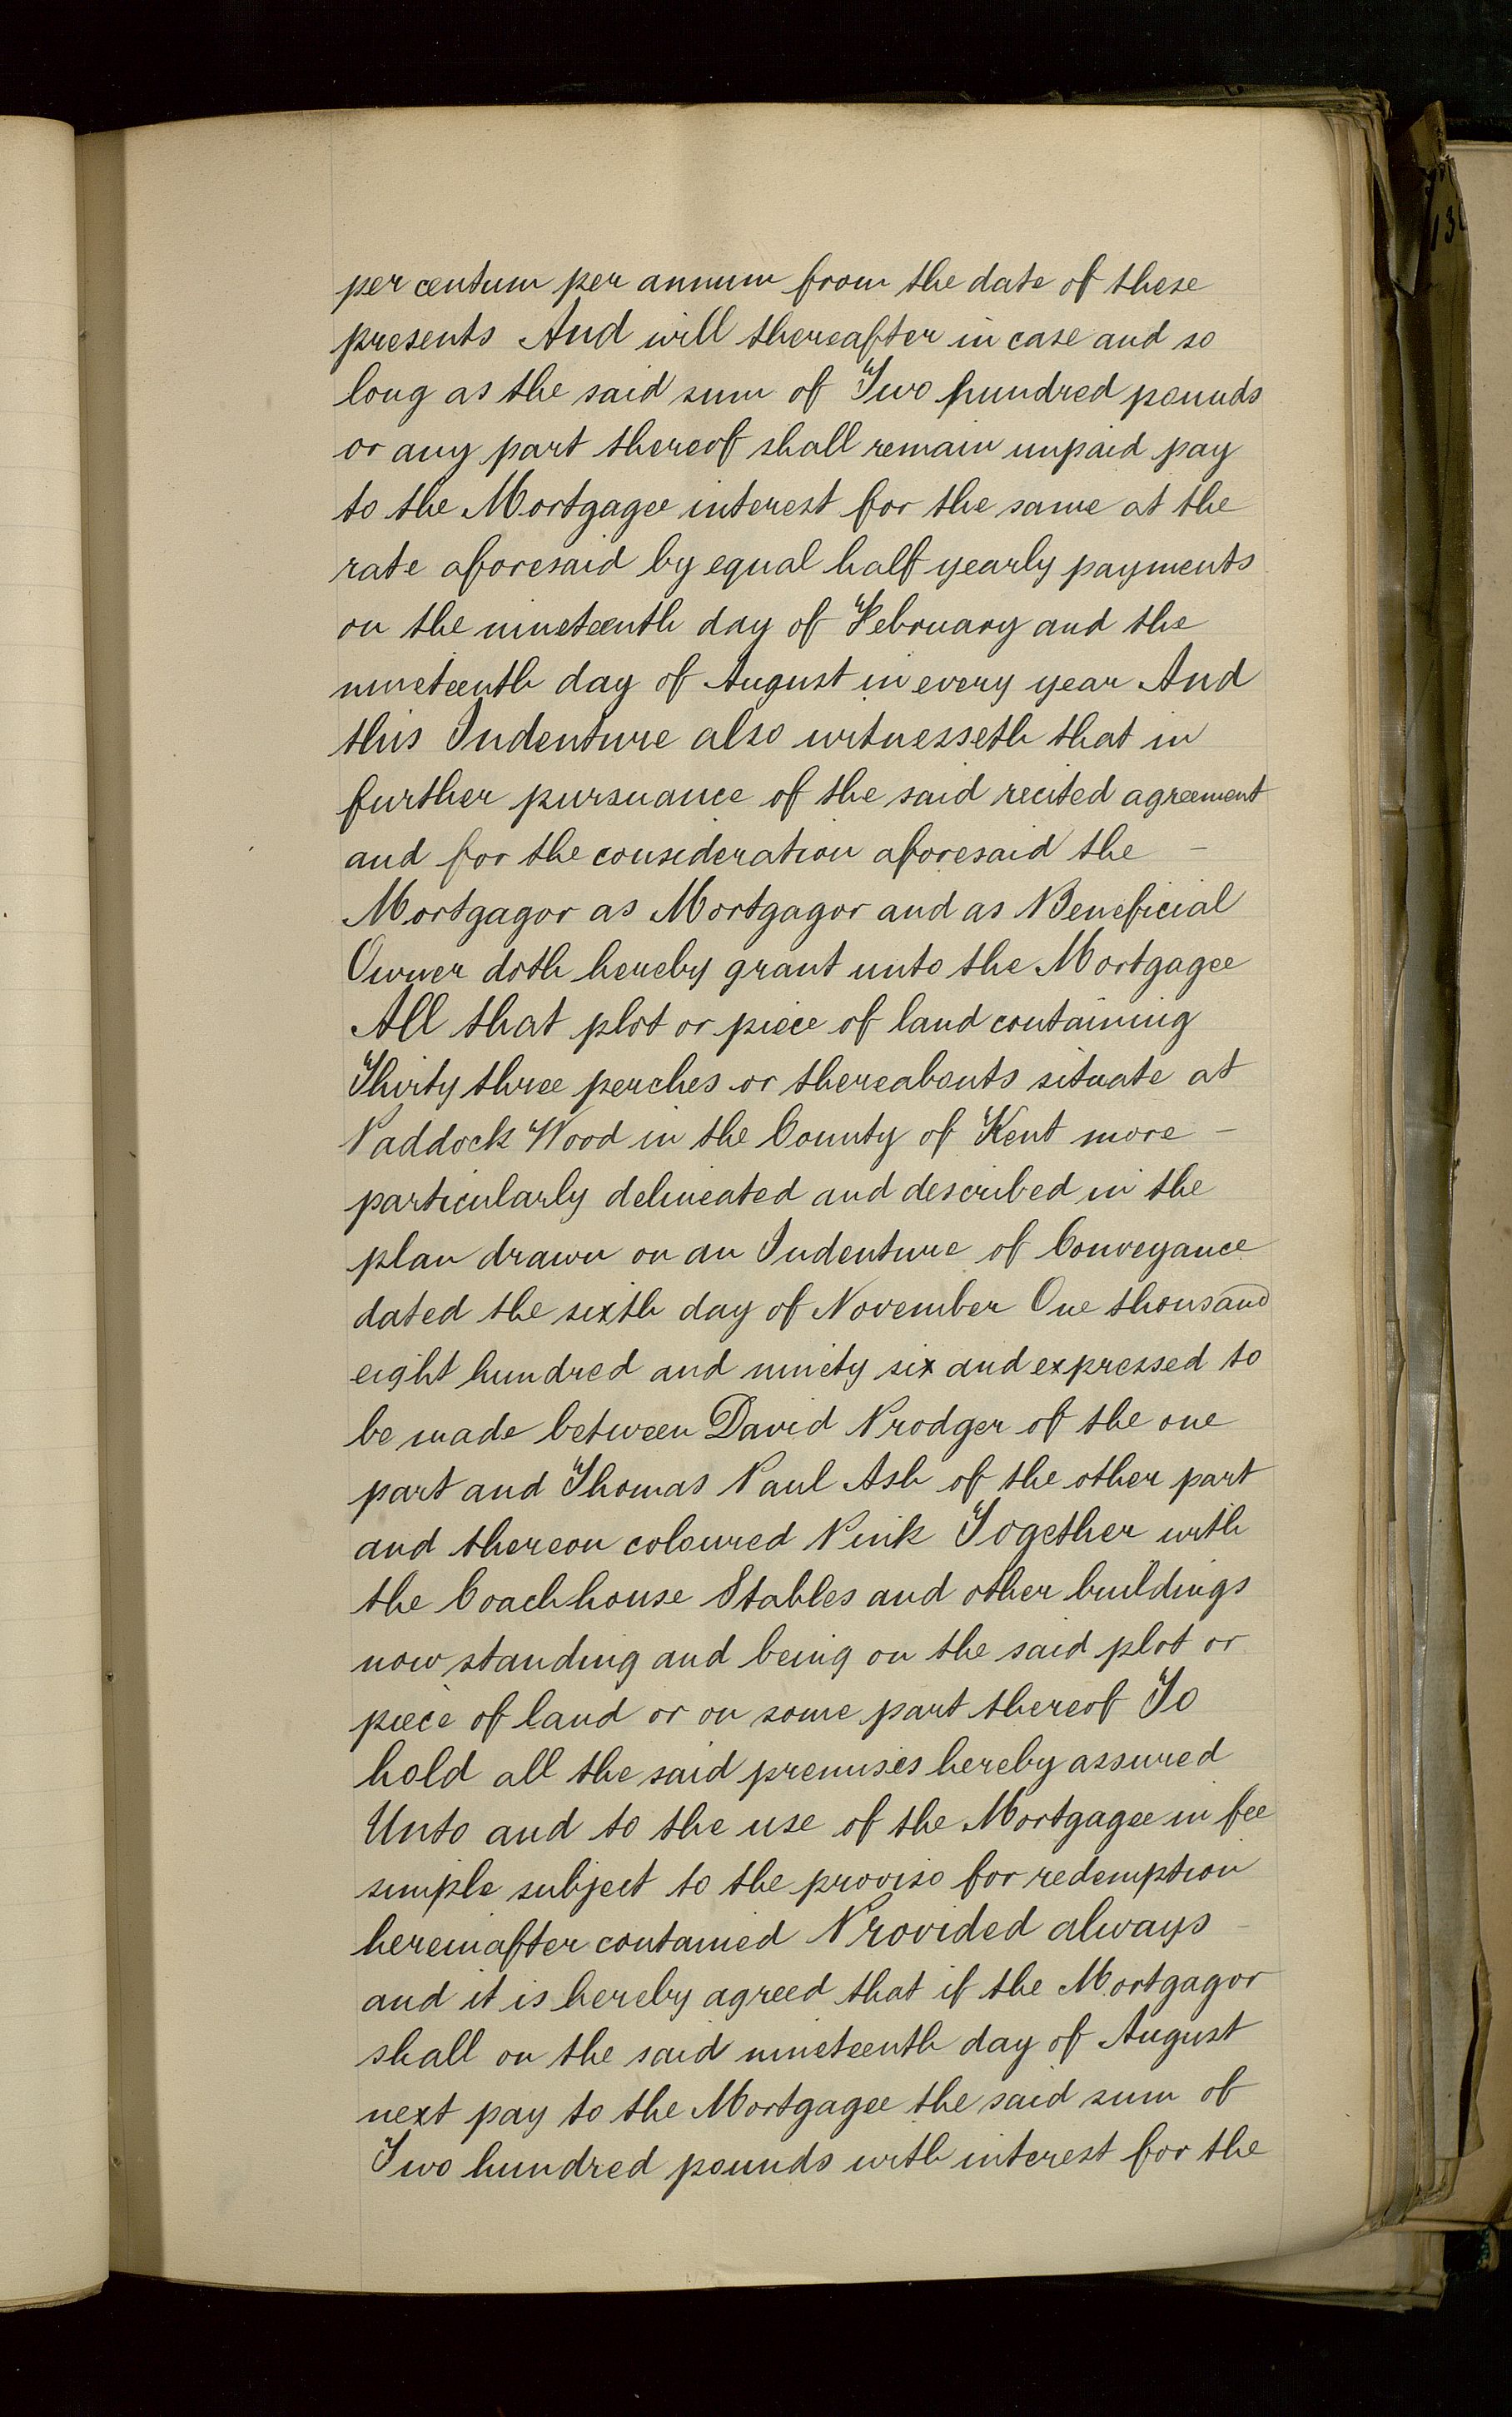 per centum per annum from the date of these
presents And will thereafter in case and so
long as the said sum of Two hundred pounds
or any part thereof shall remain unpaid pay
to the Mortgagee interest for the same at the
rate aforesaid by equal half yearly payments
on the nineteenth day of February and the
nineteenth day of August in every year And
this Indenture also witnesseth that in
further pursuance of the said recited agreement
and for the consideration aforesaid the –
Mortgagor as Mortgagor and as Beneficial
Owner doth hereby grant unto the Mortgagee
All that plot or piece of land containing
Thirty three perches or thereabouts situate at
Paddock Wood in the County of Kent more –
particularly delineated and described in the
plan drawn on an Indenture of Conveyance
dated the sixth day of November One thousand
eight hundred and ninety six and expressed to
be made between David Prodger of the one
part and Thomas Paul Ash of the other part
and thereon coloured Pink Together with
the Coachhouse Stables and other buildings
now standing and being on the said plot or
piece of land or on some part thereof To
hold all the said premises hereby assured
Unto and to the use of the Mortgagee in fee
simple subject to the proviso for redemption
hereinafter contained Provided always –
and it is hereby agreed that if the Mortgagor
shall on the said nineteenth day of August
next pay to the Mortgagee the said sum of
Two hundred pounds with interest for the